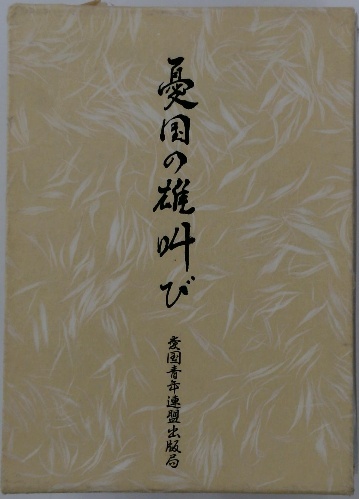 憂国の雄叫び
愛国青年連盟出版局